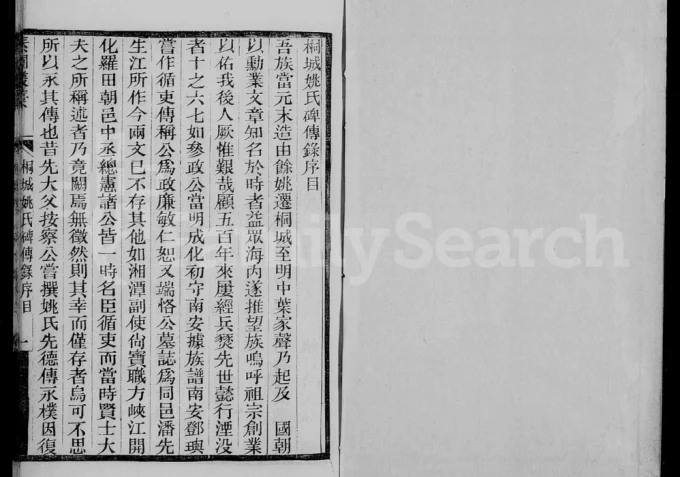 桐城姚氏碑傳錄序目
吾族當元末造由餘姚遷桐城至明中葉家聲乃起及 國朝
以勳業文章知名於時者益眾海內遂推望族嗚呼祖宗創業
以佑我後人厥惟艱哉顧五百年來屢經兵燹先世懿行湮没
者十之六七如參政公當明成化初守南安據族譜南安鄧璵
嘗作循吏傳稱公爲政廉敏仁恕又端恪公墓誌爲同邑潘先
生江所作今兩文已不存其他如湘潭副使尙寶職方峽江開
化羅田朝邑中丞總憲諸公皆一時名臣循吏而當時賢士大
夫之所稱述者乃竟闕焉無徵然則其幸而僅存者烏可不思
所以永其傳也昔先大父按察公嘗撰姚氏先德傳永樸因復
桐城姚氏碑傳錄序目 一
FamilySearch